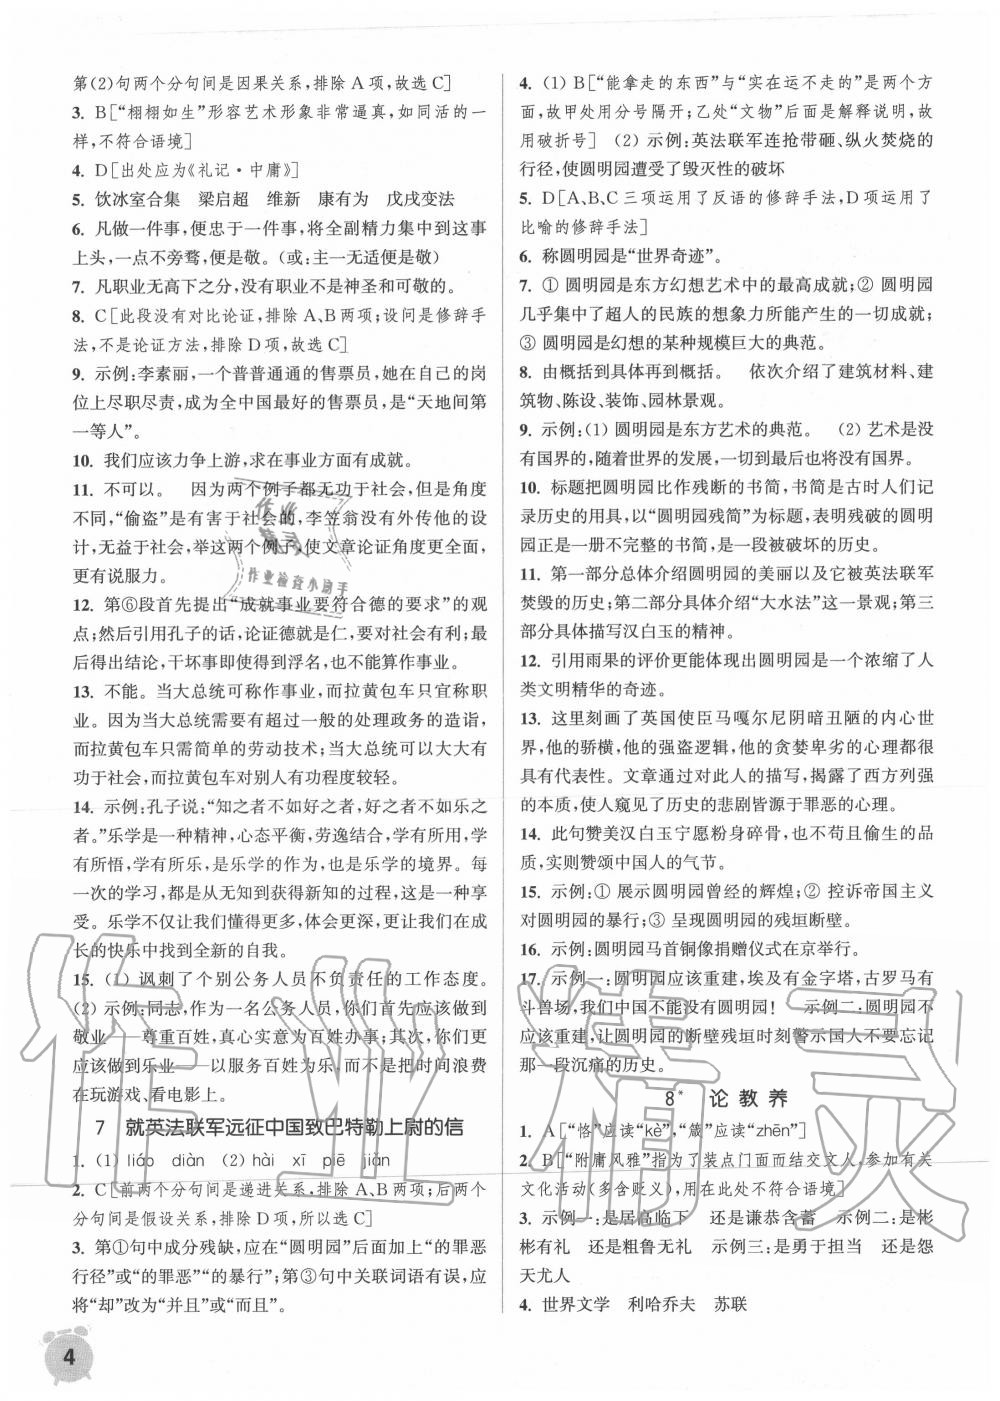 第(2)句两个分句间是因果关系,排除A项,故选C]
3. B[“栩栩如生”形容艺术形象非常逼真,如同活的一
样,不符合语境]
4. D[出处应为《礼记·中庸》]
5. 饮冰室合集 梁启超 维新 康有为 戊戌变法
6. 凡做一件事,便忠于一件事,将全副精力集中到这事
上头,一点不旁骛,便是敬。(或:主一无适便是敬)
7. 凡职业无高下之分,没有职业不是神圣和可敬的。
8. C[此段没有对比论证,排除A、B两项;设问是修辞手
法,不是论证方法,排除D项,故选C]
9. 示例:李素丽,一个普普通通的售票员,她在自己的岗
位上尽职尽责,成为全中国最好的售票员,是“天地间第
一等人”。
10. 我们应该力争上游,求在事业方面有成就。
11. 不可以。 因为两个例子都无功于社会,但是角度
不同,“偷盗”是有害于社会的,李笠翁没有外传他的设
计,无益于社会,举这两个例子,使文章论证角度更全面,
更有说服力。
12. 第⑥段首先提出“成就事业要符合德的要求”的观
点;然后引用孔子的话,论证德就是仁,要对社会有利;最
后得出结论,干坏事即使得到浮名,也不能算作事业。
13. 不能。当大总统可称作事业,而拉黄包车只宜称职
业。因为当大总统需要有超过一般的处理政务的造诣,
而拉黄包车只需简单的劳动技术;当大总统可以大大有
功于社会,而拉黄包车对别人有功程度较轻。
14. 示例:孔子说:“知之者不如好之者,好之者不如乐之
者。”乐学是一种精神,心态平衡,劳逸结合,学有所用,学
有所悟,学有所得,是乐学的作为,也是乐学的境界。每
一次的学习,都是从无知到获得新知的过程,这是一种享
受。乐学不仅让我们懂得更多,体会更深,更让我们在成
长的快乐中找到全新的自我。
15. (1) 讽刺了个别公务人员不负责任的工作态度。
(2) 示例:同志,作为一名公务人员,你们首先应该做到
敬业——尊重百姓,真心实意为百姓办事;其次,你们更
应该做到乐业——以服务百姓为乐,而不是把时间浪费
在玩游戏、看电影上。
7 就英法联军远征中国致巴特勒上尉的信
1. (1) liáo diàn (2) hài xī piē jiàn
2. C[前两个分句间是递进关系,排除A、B两项;后两个
分句间是假设关系,排除D项,所以选C]
3. 第①句中成分残缺,应在“圆明园”后面加上“的罪恶
行径”或“的罪恶”“的暴行”;第③句中关联词语有误,应
将“却”改为“并且”或“而且”。
4. (1) B[“能拿走的东西”与“实在运不走的”是两个方
面,故甲处用分号隔开;乙处“文物”后面是解释说明,故
用破折号] (2) 示例:英法联军连抢带砸、纵火焚烧的
行径,使圆明园遭受了毁灭性的破坏
5. D[A、B、C三项运用了反语的修辞手法,D项运用了
比喻的修辞手法]
6. 称圆明园是“世界奇迹”。
7. ① 圆明园是东方幻想艺术中的最高成就;② 圆明园
几乎集中了超人的民族的想象力所能产生的一切成就;
③ 圆明园是幻想的某种规模巨大的典范。
8. 由概括到具体再到概括。 依次介绍了建筑材料、建
筑物、陈设、装饰、园林景观。
9. 示例:(1) 圆明园是东方艺术的典范。 (2) 艺术是没
有国界的,随着世界的发展,一切到最后都将没有国界。
10. 标题把圆明园比作残断的书简,书简是古时人们记
录历史的用具,以“圆明园残简”为标题,表明残破的圆明
园正是一册不完整的书简,是一段被破坏的历史。
11. 第一部分总体介绍圆明园的美丽以及它被英法联军
焚毁的历史;第二部分具体介绍“大水法”这一景观;第三
部分具体描写汉白玉的精神。
12. 引用雨果的评价更能体现出圆明园是一个浓缩了人
类文明精华的奇迹。
13. 这里刻画了英国使臣马嘎尔尼阴暗丑陋的内心世
界,他的骄横,他的强盗逻辑,他的贪婪卑劣的心理都很
有代表性。文章通过对此人的描写,揭露了西方列强的
本质,使人窥见了历史的悲剧皆源于罪恶的心理。
14. 此句赞美汉白玉宁愿粉身碎骨,也不苟且偷生的品
质,实则赞颂中国人的气节。
15. 示例:① 展示圆明园曾经的辉煌;② 控诉帝国主义
对圆明园的暴行;③ 呈现圆明园的残垣断壁。
16. 示例:圆明园马首铜像捐赠仪式在京举行。
17. 示例一:圆明园应该重建,埃及有金字塔,古罗马有
斗兽场,我们中国不能没有圆明园! 示例二:圆明园不
应该重建,让圆明园的断壁残垣时刻警示国人不要忘记
那一段沉痛的历史。
8* 论教养
1. A[“恪”应读“kè”,“箴”应读“zhēn”]
2. B[“附庸风雅”指为了装点门面而结交文人,参与有关
文化活动(多含贬义),用在此处不符合语境]
3. 示例一:是居高临下 还是谦恭含蓄 示例二:是彬
彬有礼 还是粗鲁无礼 示例三:是勇于担当 还是怨
天尤人
4. 世界文学 利哈乔夫 苏联
4
作业
精灵
作业检查小助手
作业精灵